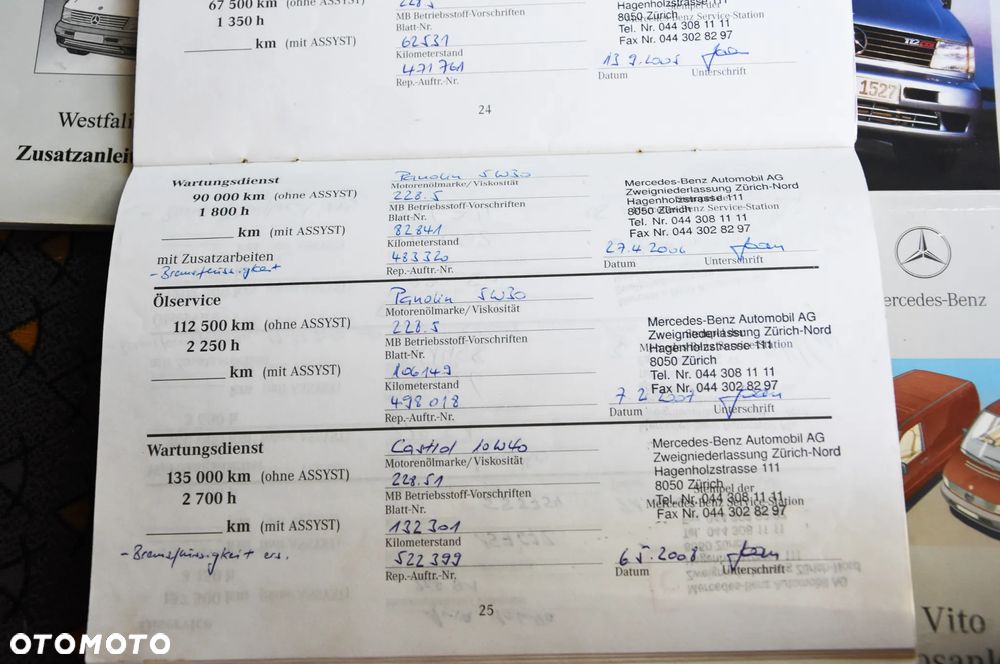 67 500 km (ohne ASSYST)
1 350 h
km (mit ASSYST)
228.5
MB Betriebsstoff-Vorschriften
Blatt-Nr.
62531
Kilometerstand
471761
Rep.-Auftr.-Nr.
Hagenholzstrasse 111
8050 Zürich
Tel. Nr. 044 308 11 11
Fax Nr. 044 302 82 97
13 9.2005
Datum
Unterschrift
24
Westfali
Zusatzanlei
1527
Wartungsdienst
90 000 km (ohne ASSYST)
1 800 h
km (mit ASSYST)
mit Zusatzarbeiten
- Bremsflüssigkeit
Panolin 5W30
Motorenölmarke/Viskosität
228.5
MB Betriebsstoff-Vorschriften
Blatt-Nr.
82841
Kilometerstand
483320
Rep.-Auftr.-Nr.
Mercedes-Benz Automobil AG
Zweigniederlassung Zürich-Nord
Hagenholzstrasse 111
8050 Zürich
Mercedes-Benz Service-Station
Tel. Nr. 044 308 11 11
Fax Nr. 044 302 82 97
27.4 2006
Datum
Unterschrift
Ölservice
112 500 km (ohne ASSYST)
2 250 h
km (mit ASSYST)
Panolin 5W30
Motorenölmarke/Viskosität
228.5
MB Betriebsstoff-Vorschriften
Blatt-Nr.
106149
Kilometerstand
498018
Rep.-Auftr.-Nr.
Mercedes-Benz Automobil AG
Zweigniederlassung Zürich-Nord
Hagenholzstrasse 111
8050 Zürich
Tel. Nr. 044 308 11 11
Fax Nr. 044 302 82 97
7 2 2007
Datum
Unterschrift
Wartungsdienst
135 000 km (ohne ASSYST)
2 700 h
km (mit ASSYST)
- Bremsflüssigkeit ers.
Castrol 10W40
Motorenölmarke/Viskosität
228.51
MB Betriebsstoff-Vorschriften
Blatt-Nr.
132301
Kilometerstand
522399
Rep.-Auftr.-Nr.
Mercedes-Benz Automobil AG
Zweigniederlassung Zürich-Nord
Hagenholzstrasse 111
8050 Zürich
Stempel der
Mercedes-Benz Service-Station
Tel. Nr. 044 308 11 11
Fax Nr. 044 302 82 97
6 5.2008
Datum
Unterschrift
25
ercedes-Benz
Vito
OTOMOTO